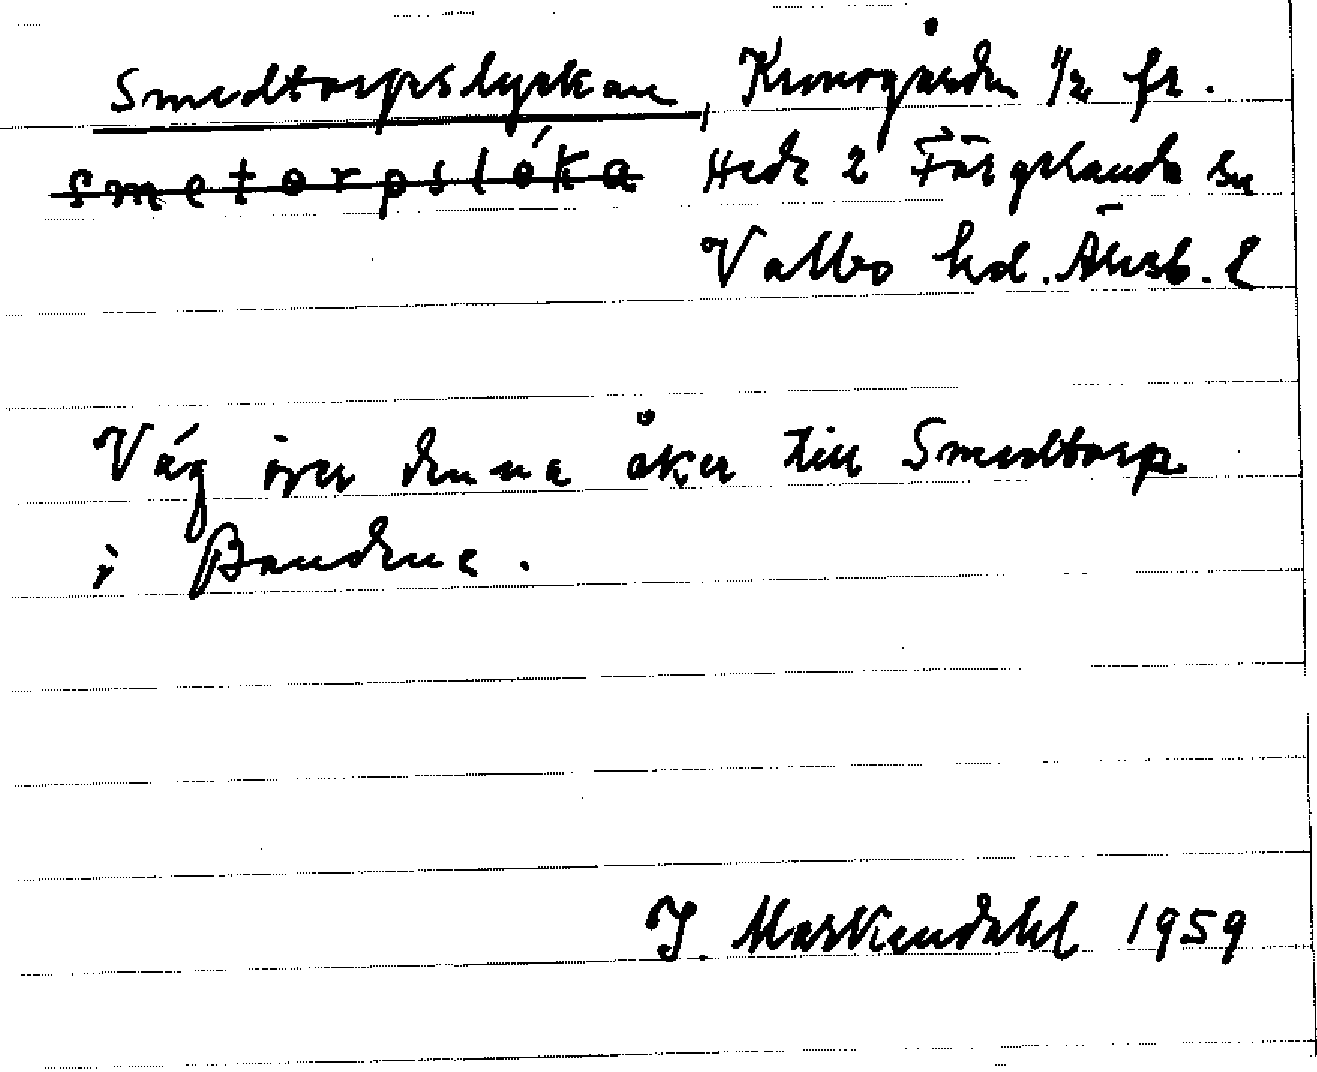 Smedtorpslyckan, Kronogården 1/2 fr.
smetorpslóka Hede 2 Färgelanda sn
Valbo hd. Älvsb. l
Väg över denna åker till Smedtorp
i Brandene.
J. Markendahl 1959